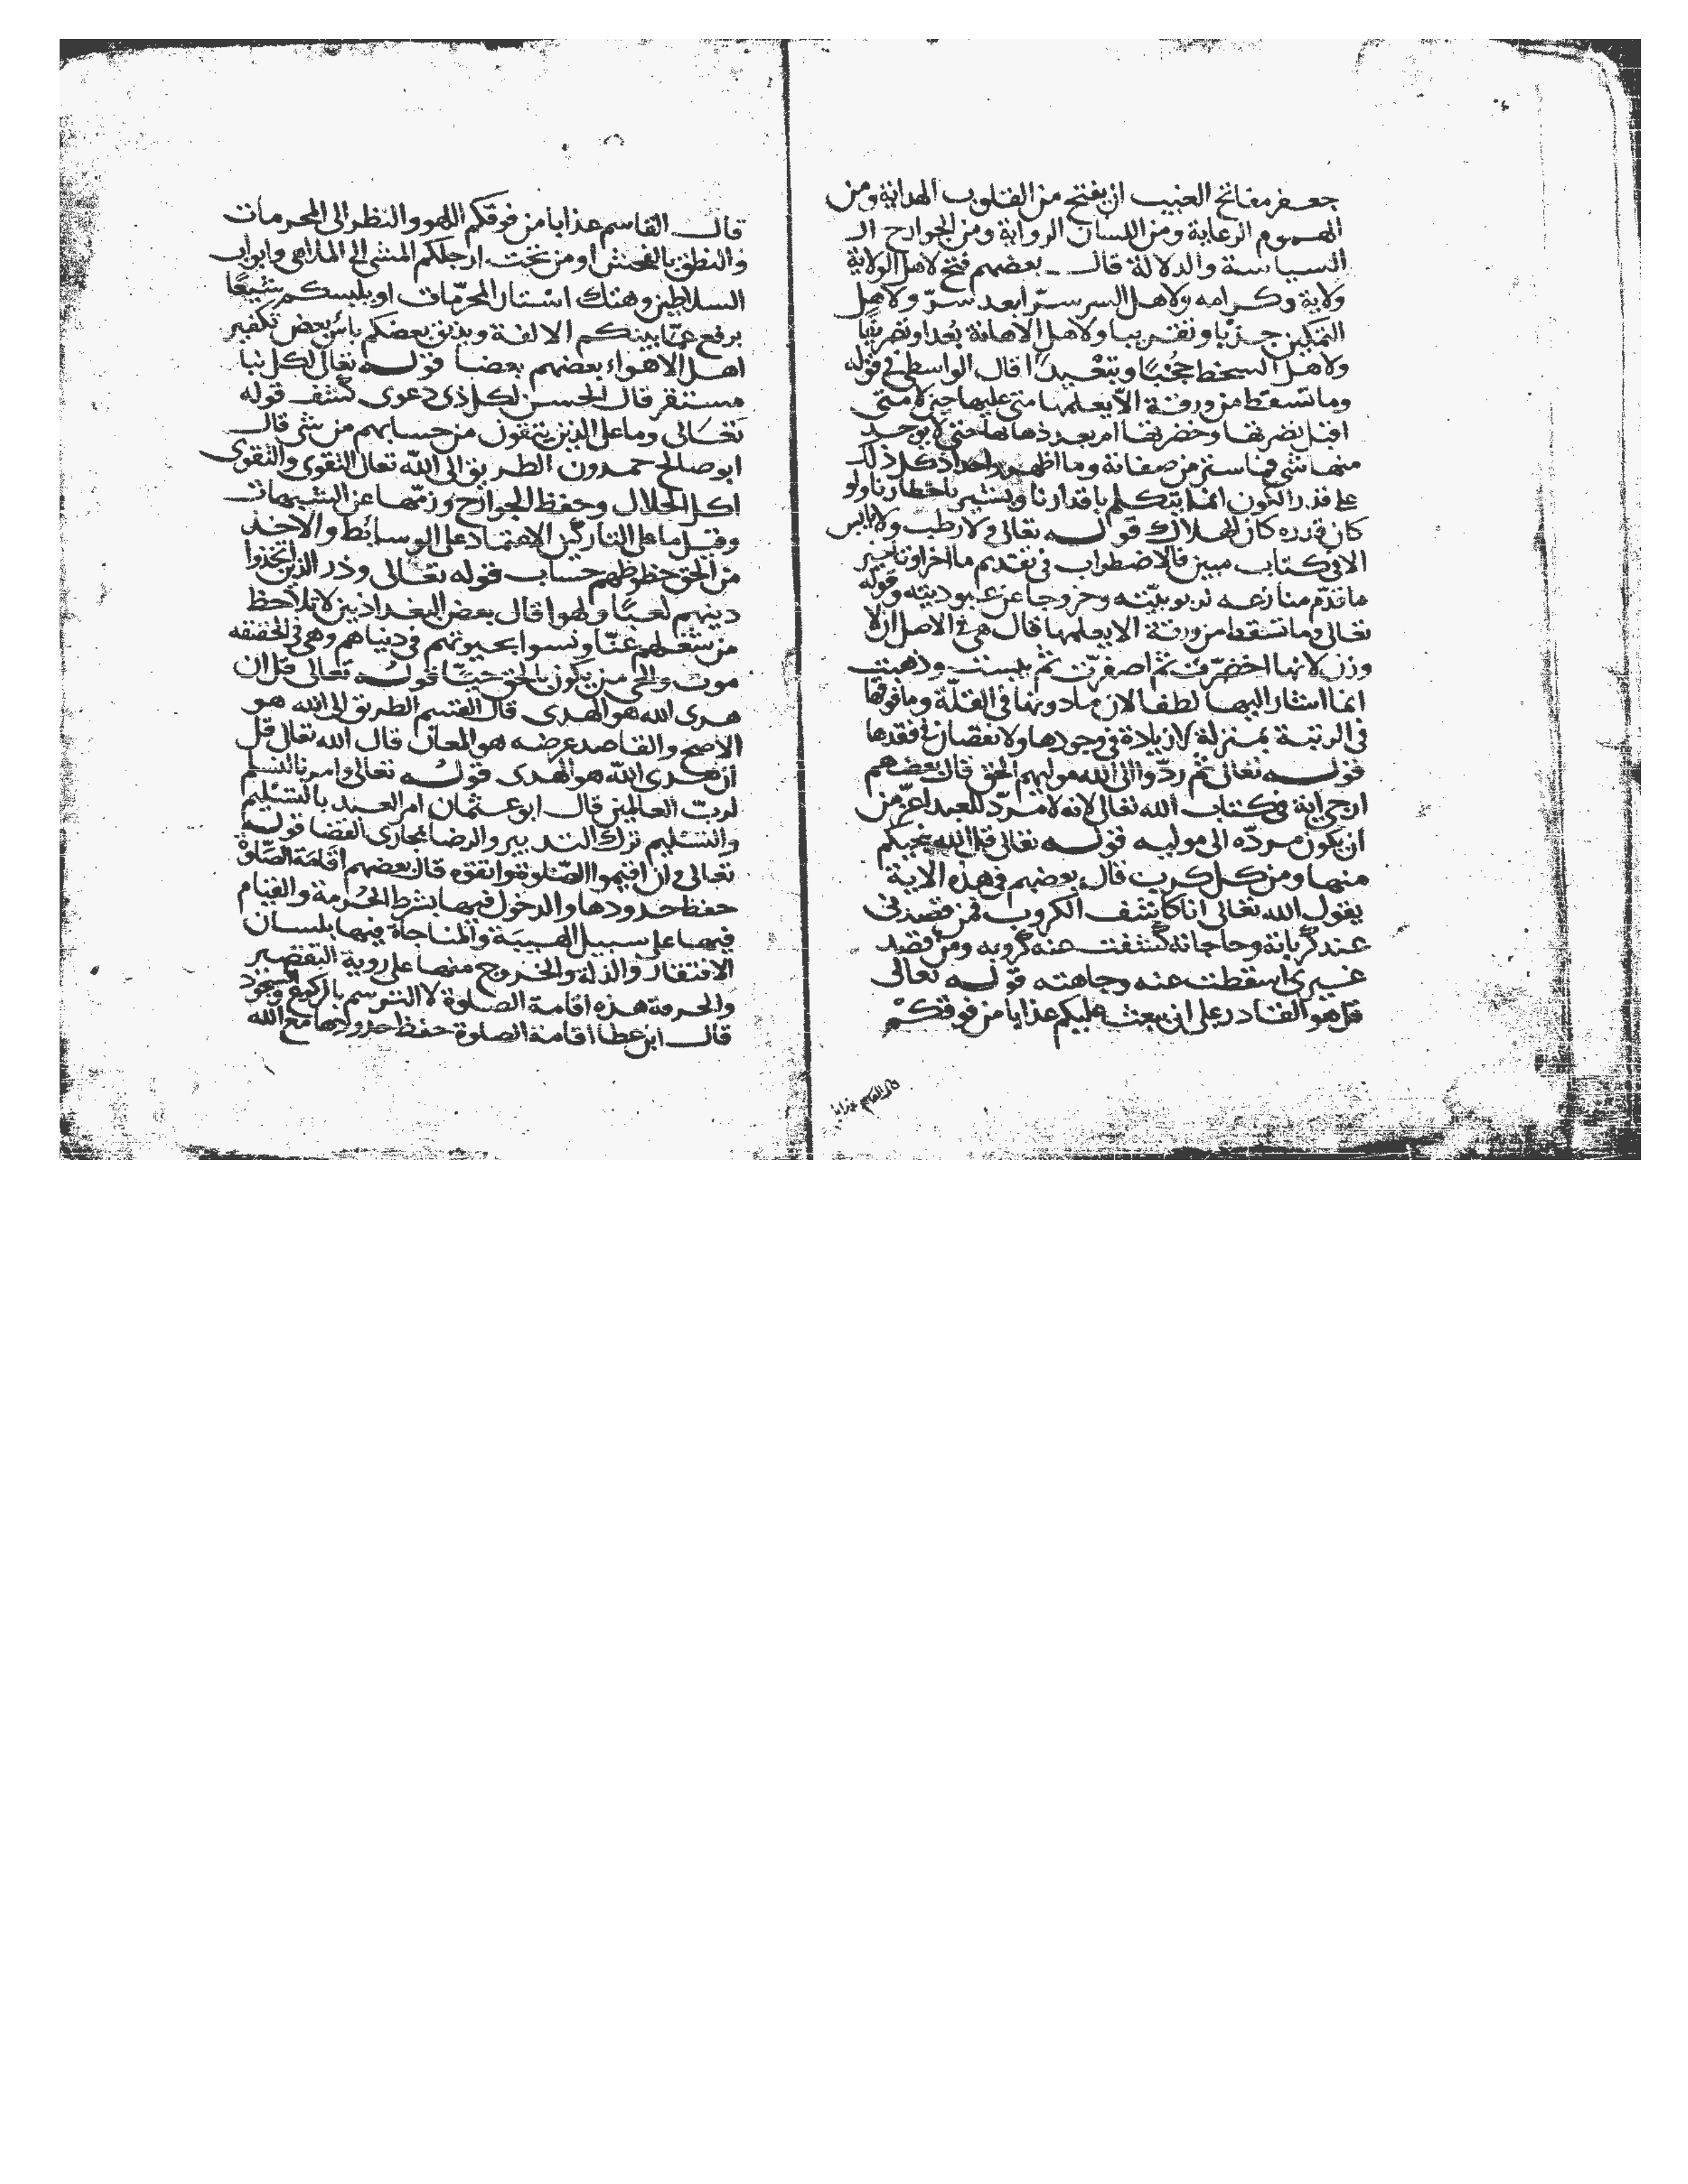 جعفر مفاتح الغيب ان يفتح من القلوب الهداية ومن
الهموم الرعاية ومن اللسان الرواية ومن الجوارح ال
السياسة والدلالة قال بعضهم فتح لاهل الولاية
ولاية وكرامه ولاهل السر سرّا بعد سرّ ولاهل
التمكين جذبا وتقريبا ولاهل الاهانة بُعدا وتصريفا
ولاهل السخط حجبًا وتبْعيدًا قال الواسطى فى قوله
وما تسقط من ورقة الا يعلمها متى عليها حين لا متى
اقبل بضرتها وخضرتها ام بعد ذهابها حتى لا يوجد
منها شى فما استتر من صفاته وما اظهر واحد اذ كل ذلك
على قدر الكون انما يتكلم باقدارنا ويشير باخطارنا ولو
كان قدره كان الهلاك قوله تعالى ولا رطب ولا يابس
الا فى كتاب مبين فالاضطراب فى تقديم ما اخر او تاخير
ما قدّم منازعه لربوبيّته وخروجا عن عبوديته وقوله
تعالى وما تسقط من ورقة الا يعلمها قال هى فى الاصل ان لا
وزن لانها اخضرّت ثم اصفرّت ثم يبست وذهبت
انما اشار اليها لطفا لان ما دونها فى القلّة وما فوقها
فى الرتبة بمنزلة لا زيادة فى وجودها ولا نقصان فى فقدها
قوله تعالى ثم ردّوا الى الله موليهم الحق قال بعضهم
ارجى اية فى كتاب الله تعالى لانه لا مردّ للعبد اعزّ من
ان يكون مردّه الى موليه قوله تعالى قل الله ينجيكم
منها ومن كل كرب قال بعضهم فى هذه الاية
يقول الله تعالى انا كاشف الكروب فمن قصدنى
عند كرباته وحاجاته كشفت عنه كروبه ومن قصد
غيرى اسقطت عنه وجاهته قوله تعالى
قل هو القادر على ان يبعث عليكم عذابا من فوقكم
قال القاسم عذابا من فوقكم اللهو والنظر الى المحرمات
والنطق بالفحش او من تحت ارجلكم المشى الى الملاهى وابواب
السلاطين وهتك استار المحرّمات او يلبسكم شيعًا
يرفع عمّا بينكم الالفة ويذيق بعضكم باس بعض تكفير
اهل الاهواء بعضهم بعضا قوله تعالى لكل نبا
مستقر قال الحسن لكل ذى دعوى كشف قوله
تعالى وما على الذين يتقون من حسابهم من شى قال
ابو صالح حمدون الطريق الى الله تعالى التقوى والتقوى
اكل الحلال وحفظ الجوارح وزمّها عن الشبهات
وقيل ما على التاركين الاعتماد على الوسائط والاخذ
من الحق حظوظهم حساب قوله تعالى وذر الذين اتخذوا
دينهم لعبًا ولهوا قال بعض البغداذيين لا تلاحظ
من شغلهم عنّا ونسوا بحيوتهم فى دنياهم وهى فى الحقيقه
موت والحى من يكون بالحق حيّا قوله تعالى قل ان
هدى الله هو الهدى قال القسم الطريق الى الله هو
الاصح والقاصد عرضه هو المعان قال الله تعالى قل
ان هدى الله هو الهدى قوله تعالى وامرنا لنسلم
لربّ العالمين قال ابو عثمان امر العبد بالتسليم
والتسليم ترك التدبير والرضا بمجارى القضا قوله
تعالى وان اقيموا الصّلوة واتقوه قال بعضهم اقامة الصّلوة
حفظ حدودها والدخول فيها بشرط الحُرمة والقيام
فيها على سبيل الهيبة والمناجاة فيها بلسان
الافتقار والذلة والخروج منها على روية التقصير
والحرمة هذه اقامة الصلوة لا الترسم بالركوع والسجود
قال ابن عطا اقامة الصلوة حفظ حدودها مع الله